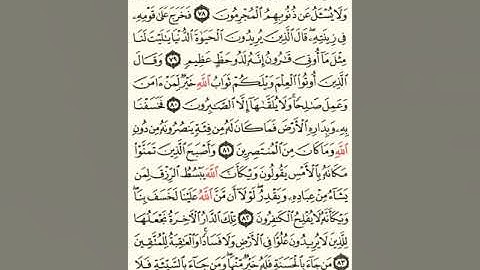 وَلَا يُسْـَٔلُ عَن ذُنُوبِهِمُ ٱلْمُجْرِمُونَ ٧٨ فَخَرَجَ عَلَىٰ قَوْمِهِۦ
فِى زِينَتِهِۦ ۖ قَالَ ٱلَّذِينَ يُرِيدُونَ ٱلْحَيَوٰةَ ٱلدُّنْيَا يَـٰلَيْتَ لَنَا
مِثْلَ مَآ أُوتِىَ قَـٰرُونُ إِنَّهُۥ لَذُو حَظٍّ عَظِيمٍ ٧٩ وَقَالَ
ٱلَّذِينَ أُوتُوا۟ ٱلْعِلْمَ وَيْلَكُمْ ثَوَابُ ٱللَّهِ خَيْرٌ لِّمَنْ ءَامَنَ
وَعَمِلَ صَـٰلِحًا وَلَا يُلَقَّىٰهَآ إِلَّا ٱلصَّـٰبِرُونَ ٨٠ فَخَسَفْنَا
بِهِۦ وَبِدَارِهِ ٱلْأَرْضَ فَمَا كَانَ لَهُۥ مِن فِئَةٍ يَنصُرُونَهُۥ مِن دُونِ
ٱللَّهِ وَمَا كَانَ مِنَ ٱلْمُنتَصِرِينَ ٨١ وَأَصْبَحَ ٱلَّذِينَ تَمَنَّوْا۟
مَكَانَهُۥ بِٱلْأَمْسِ يَقُولُونَ وَيْكَأَنَّ ٱللَّهَ يَبْسُطُ ٱلرِّزْقَ لِمَن
يَشَآءُ مِنْ عِبَادِهِۦ وَيَقْدِرُ ۖ لَوْلَآ أَن مَّنَّ ٱللَّهُ عَلَيْنَا لَخَسَفَ بِنَا ۖ
وَيْكَأَنَّهُۥ لَا يُفْلِحُ ٱلْكَـٰفِرُونَ ٨٢ تِلْكَ ٱلدَّارُ ٱلْـَٔاخِرَةُ نَجْعَلُهَا
لِلَّذِينَ لَا يُرِيدُونَ عُلُوًّا فِى ٱلْأَرْضِ وَلَا فَسَادًا ۚ وَٱلْعَـٰقِبَةُ لِلْمُتَّقِينَ
٨٣ مَن جَآءَ بِٱلْحَسَنَةِ فَلَهُۥ خَيْرٌ مِّنْهَا ۖ وَمَن جَآءَ بِٱلسَّيِّئَةِ فَلَا